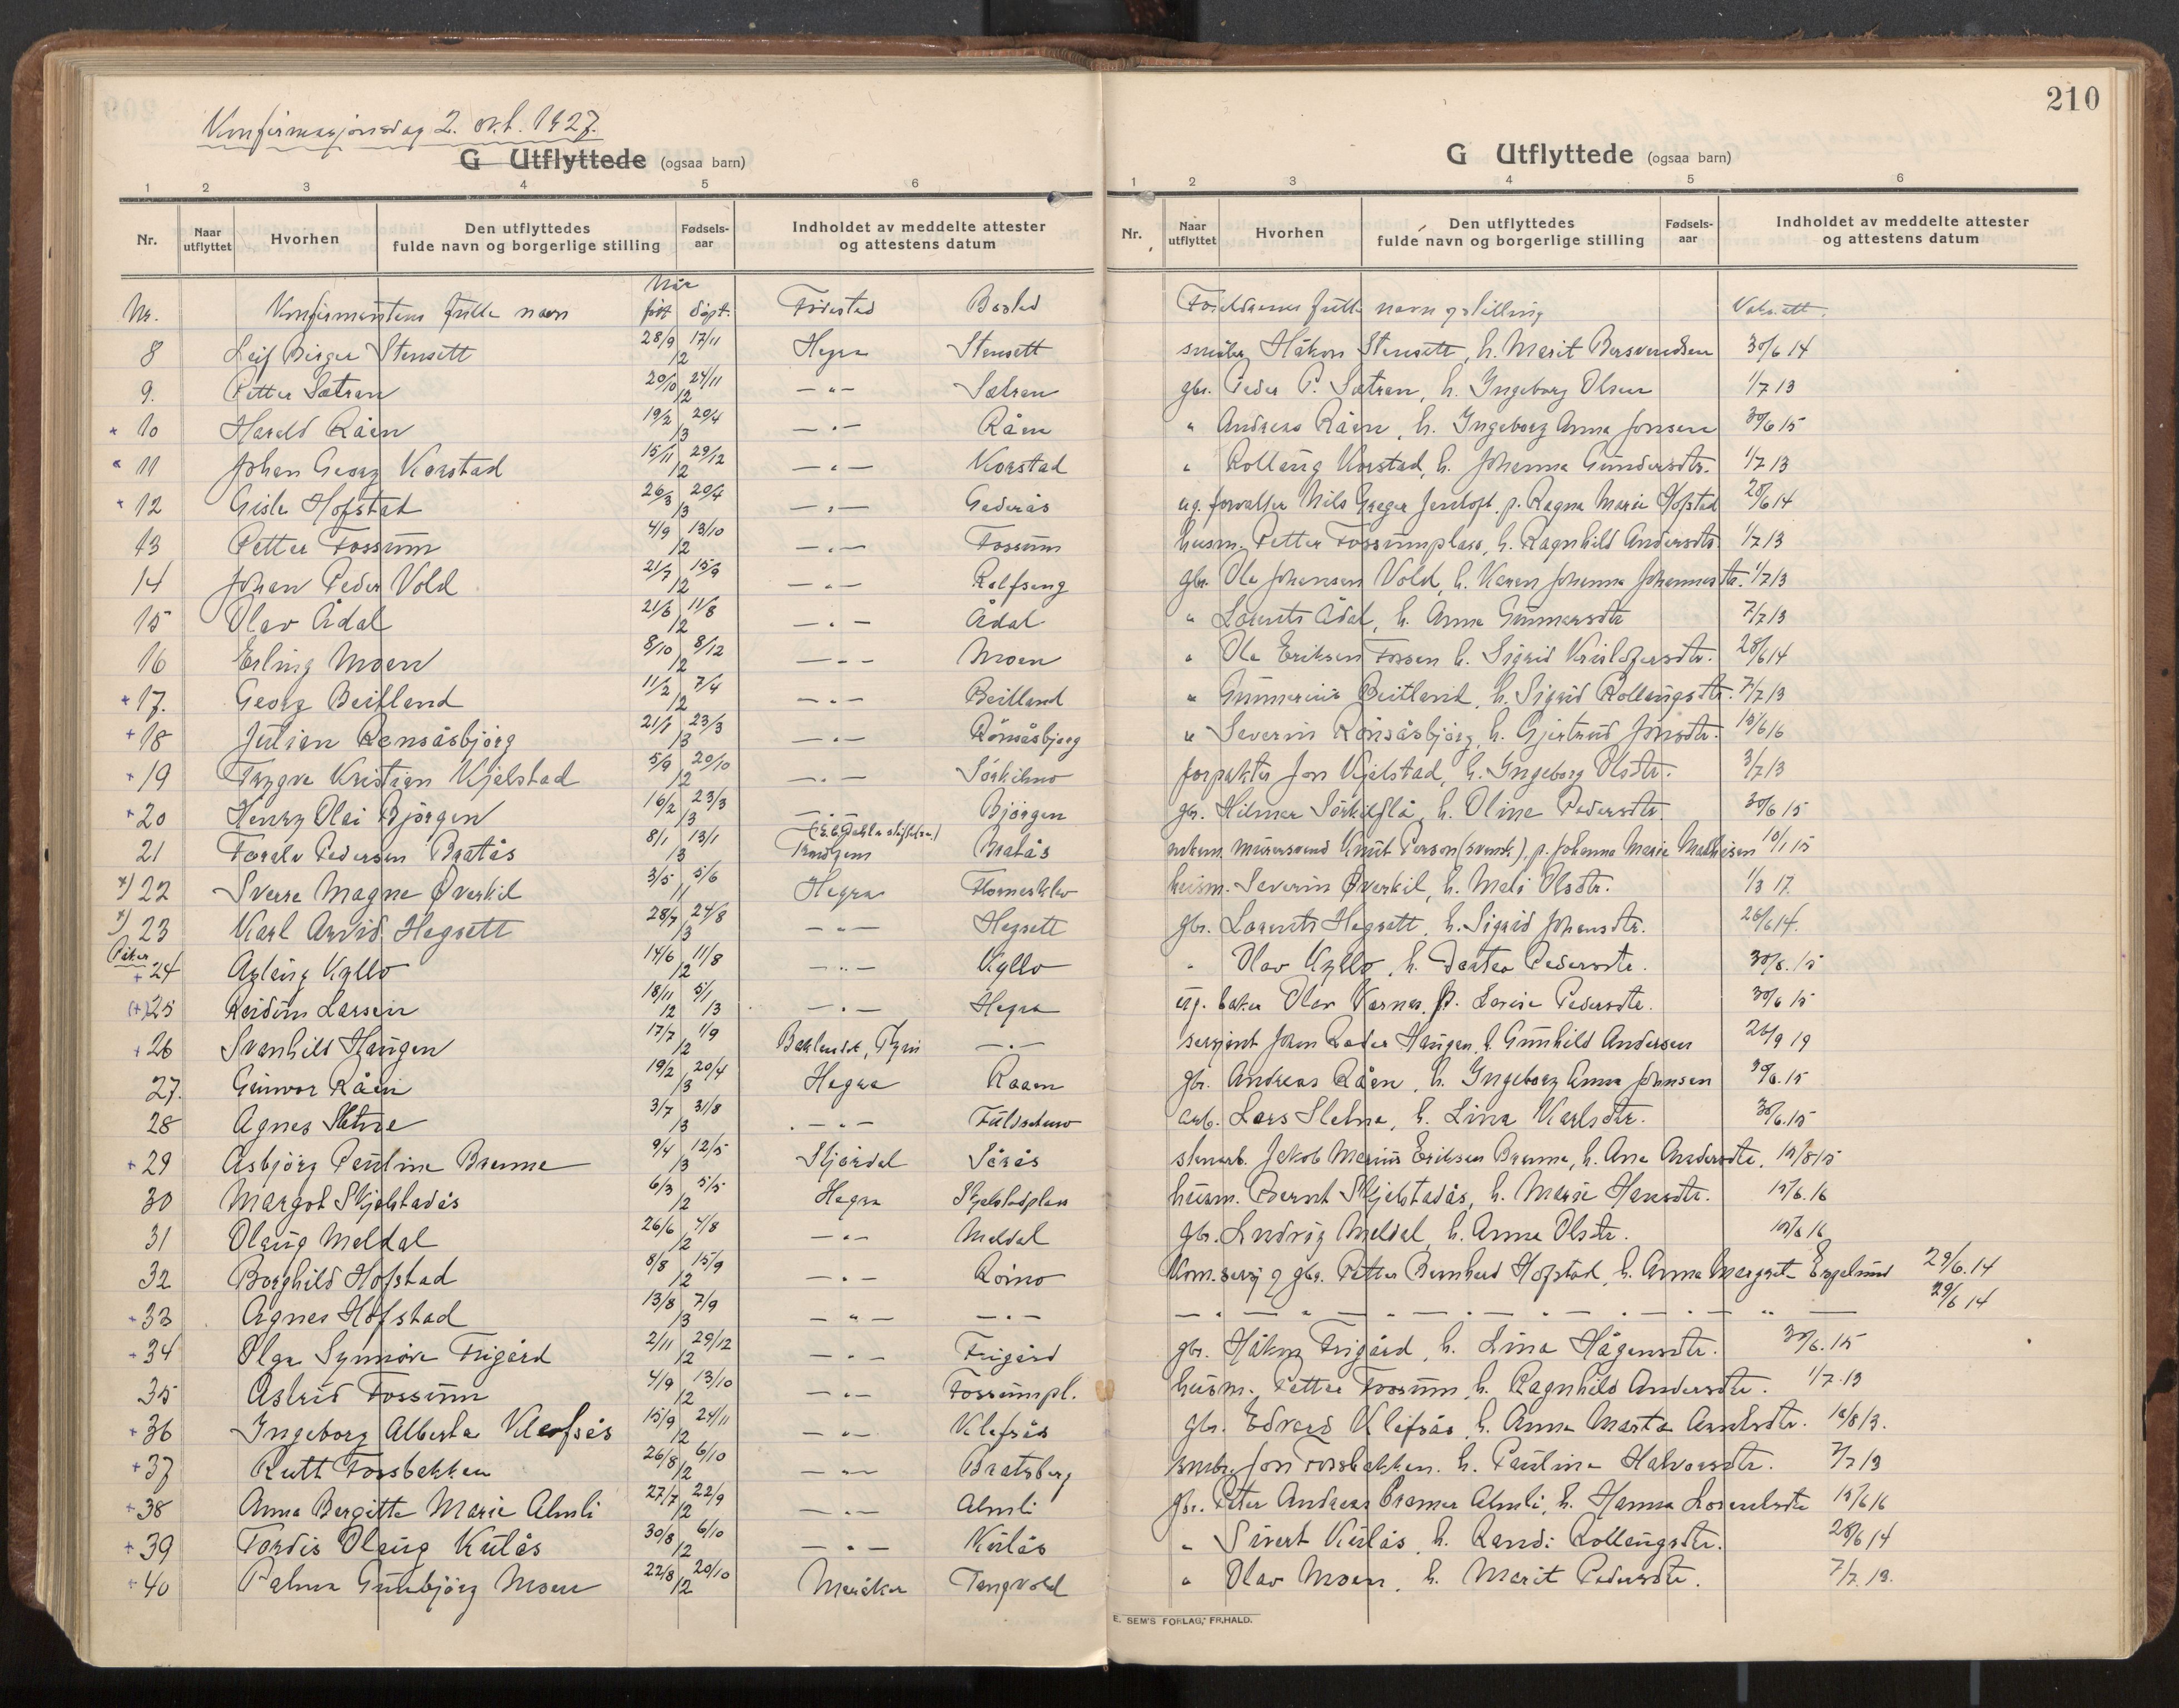 Konfirmasjonsdag 2. okt. 1927.
G Utflyttede (ogsaa barn)
1 2 3 4 5 6
Nr. Naar utflyttet Hvorhen Den utflyttedes fulde navn og borgerlige stilling Fødselsaar Indholdet av meddelte attester og attestens datum
Når
Nr. Konfirmantens fulle navn født døpt Fødested Bosted
8 Leif Birger Stensett 28/9 17/11 12 Hegra Stensett
9. Petter Sætran 20/10 24/11 12 — " — Sætran
+ 10 Harald Råen 19/2 20/4 13 — " — Råen
+ 11 Johan Georg Korstad 15/11 29/12 12 — " — Korstad
+ 12 Gisle Hofstad 26/3 20/4 13 — " — Gederås
13 Petter Fossum 4/9 13/10 12 — " — Fossum
14 Johan Peder Vold 21/7 15/9 12 — " — Rolfseng
15 Olav Ådal 21/6 11/8 12 — " — Ådal
16 Erling Moen 8/10 8/12 12 — " — Moen
+ 17. Georg Beitland 11/2 7/4 12 — " — Beitland
+ 18 Julian Rønsåsbjørg 21/1 23/3 13 — " — Rønsåsbjørg
+ 19 Trygve Kristian Kjelstad 5/9 20/10 12 — " —
+ 20 Henry Olai Bjørgen 16/2 23/3 13 — " — Bjørgen
21 Toralv Pedersen Bratås 8/1 13/1 13 Trondhjem Bratås
x) 22 Sverre Magne Øverkil 3/5 5/6 11 Hegra
x) 23 Karl Arvid Hegsett 28/7 24/8 13 — " — Hegsett
Piker
+ 24 Aslaug Kyllo 14/6 11/8 12 — " — Kyllo
(+) 25 Reidun Larsen 18/11 12 5/1 13 — " — Hegra
+ 26 Svanhild Haugen 17/7 1/9 12 Baklandet, Thjem — " —
27. Gunvor Råen 19/2 20/4 13 Hegra Raaen
28 Agnes Sletne 3/7 31/8 13 — " —
+ 29 Asbjørg Pauline Brenne 9/4 12/5 13 Stjørdal Sårås
30 Margot Skjelstadås 6/3 5/5 12 Hegra Skjelstadplass
31 Olaug Meldal 26/6 4/8 12 — " — Meldal
32 Borghild Hofstad 8/8 15/9 12 — " — Roino
+ 33 Agnes Hofstad 13/8 7/9 13 — " — — " —
+ 34 Olga Synnøve Trigård 2/11 29/12 12 — " — Trigård
35 Astrid Fossum 4/9 13/10 12 — " — Fossumpl.
+ 36 Ingeborg Alberta Klefsås 15/9 24/11 12 — " — Klefsås
+ 37 Rutt Fossbakken 26/8 6/10 12 — " — Bratsberg
+ 38 Anna Bergitte Marie Almli 27/7 22/9 12 — " — Almli
+ 39 Tordis Olaug Kulås 30/8 6/10 12 — " — Kulås
+ 40 Palma Gunbjørg Moen 22/8 20/10 12 Meråker Tangvold
210
G Utflyttede (ogsaa barn)
1 2 3 4 5 6
Nr. Naar utflyttet Hvorhen Den utflyttedes fulde navn og borgerlige stilling Fødselsaar Indholdet av meddelte attester og attestens datum
Foreldrenes fulle navn og stilling Vaks. att.
småbr. Håkon Stensett, h. Marit Bersvendsen 30/6 14
gbr. Peder P. Sætran, h. Ingeborg Olsen 1/7 13
" Andreas Råen, h. Ingeborg Anna Jonsen 30/6 15
" Rollaug Korstad, h. Johanna Gundersdtr. 1/7 13
ug. forvalter Nils Greger Jenstoft, p. Ragna Marie Hofstad 28/6 14
husm. Petter Fossumplass, h. Ragnhild Andersdtr. 1/7 13
gbr. Ole Johansen Vold, h. Karen Johanna Johannesdtr. 1/7 13
" Lorents Ådal, h. Anna Gunnarsdtr 7/7 13
" Ole Eriksen Fossen h. Sigrid Kristofersdtr. 28/6 14
" Gunnerius Beitland, h. Sigrid Rollaugsdtr. 7/7 13
" Severin Rønsåsbjørg, h. Gjertrud Jonsdtr. 15/6 16
forpakter Jon Kjelstad, h. Ingeborg Olsdtr. 3/7 13
gbr. Hilmar h. Oline Pedersdtr. 30/6 15
murersvend Knut Person (svensk), p. Johanna Marie Mathisen 10/1 15
husm. Severin Øverkil, h. Meli Olsdtr. 1/3 17.
gbr. Lorents Hegsett, h. Sigrid Johansdtr. 26/6 14.
" Olav Kyllo, h. Dortea Pedersdtr. 30/6. 15
ug. baker Olav Varnes, p. Lovise Pedersdtr. 30/6 15
sersjant John Peder Haugen, h. Gunhild Andersen 26/9 19
gbr. Andreas Råen, h. Ingeborg Anna Johnsen 30/6. 15
arb. Lars Sletne, h. Lina Karlsdtr. 30/6. 15
stenarb. Jakob Marius Eriksen Brenne, h. Ane Andersdtr. 19/8 15
husm. Bernt Skjelstadås, h. Marie Hansdtr. 15/6. 16
gbr. Ludvig Meldal, h. Anna Olsdtr. 15/6 16
Kom.serj og gbr. Petter Bernhard Hofstad, h. Anna Margrete Engelsrud 29/6. 14
— " — " — " — " — " — 29/6 14
gbr. Håkon Trigård, h. Lina Hågensdtr. 30/6. 15
husm. Petter Fossum, h. Ragnhild Andersdtr. 1/7. 13
gbr. Edvard Klefsås, h. Anna Marta Arntsdtr. 18/8 13.
småbr. Jon Fossbakken. h. Pauline Halvorsdtr. 7/7 13
gbr. Peter Andreas Cramer Almli, h. Hanna Lorentsdtr 15/6 16
" Sivert Kulås, h. Randi Rollaugsdtr. 28/6 14
" Olav Moen, h. Marit Pedersdtr. 7/7. 13.
E. SEM'S FORLAG, FR.HALD.